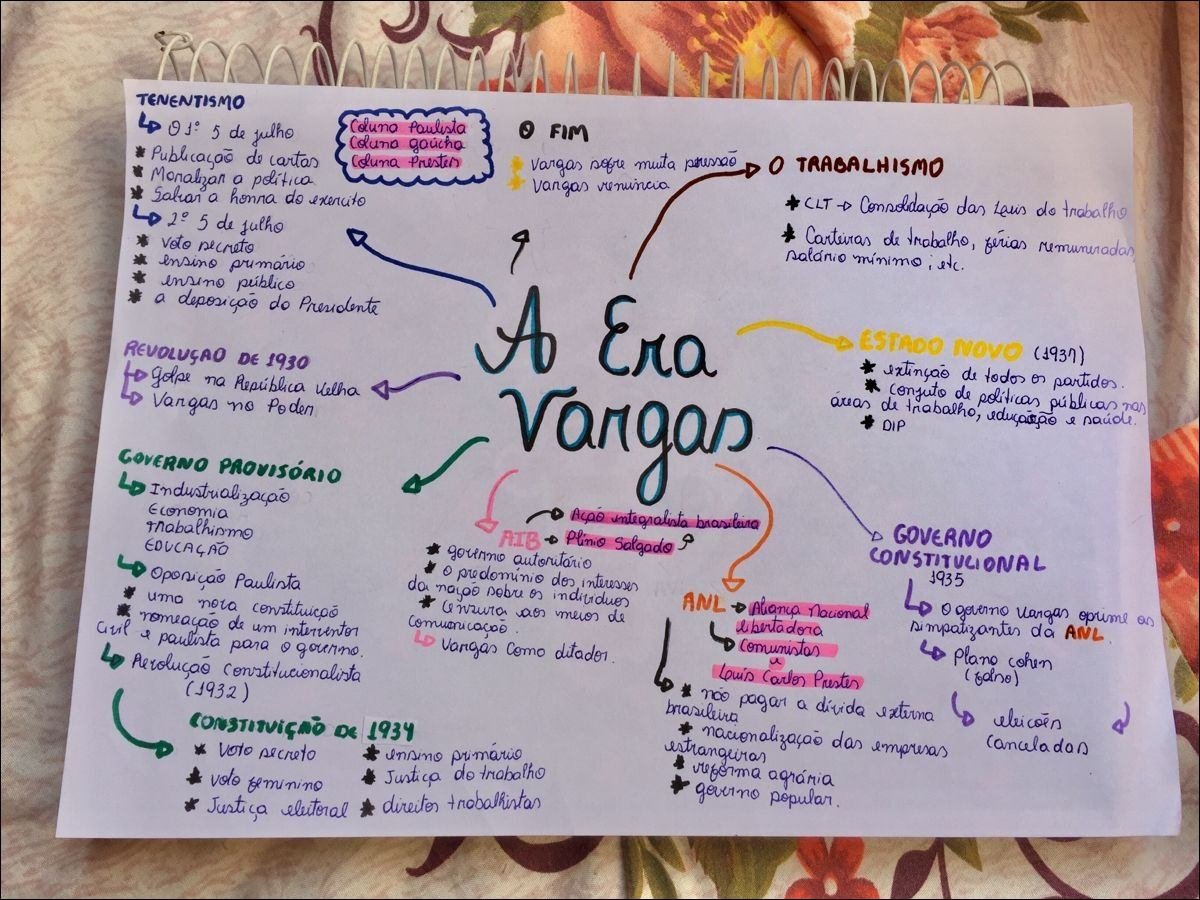 TENENTISMO
O 1º 5 de julho
* Publicação de cartas
* Moralizar a política
* Salvar a honra do exercito
2º 5 de julho
* Voto secreto
* ensino primário
* ensino público
* a deposição do Presidente
Coluna Paulista
Coluna gaúcha
Coluna Prestes
O FIM
* Vargas sofre muita pressão
* Vargas renuncia
O TRABALHISMO
* CLT → Consolidação das Leis do trabalho
* Carteiras de trabalho, férias remuneradas,
salário mínimo, etc.
A Era
Vargas
REVOLUÇÃO DE 1930
Golpe na República Velha
Vargas no Poder
ESTADO NOVO (1937)
* extinção de todos os partidos.
* conjuto de políticas públicas nas
áreas de trabalho, educação e saúde.
* DIP
GOVERNO PROVISÓRIO
Industrialização
Economia
Trabalhismo
EDUCAÇÃO
Oposição Paulista
* uma nova constituição
* nomeação de um interventor
civil e paulista para o governo.
Revolução Constitucionalista
(1932)
CONSTITUIÇÃO DE 1934
* Voto secreto
* voto feminino
* Justiça eleitoral
* ensino primário
* Justiça do trabalho
* direitos trabalhistas
AIB → Ação integralista brasileira
→ Plínio Salgado
* governo autoritário
* O predomínio dos interesses
da nação sobre os indivíduos
* Censura aos meios de
comunicação.
Vargas como ditador.
ANL → Aliança Nacional
libertadora
Comunistas
e
Luís Carlos Prestes
* não pagar a dívida externa
brasileira
* nacionalização das empresas
estrangeiras
* reforma agrária
* governo popular.
GOVERNO
CONSTITUCIONAL
1935
O governo Vargas oprime os
simpatizantes da ANL.
Plano cohen
(falso)
eleicões
canceladas